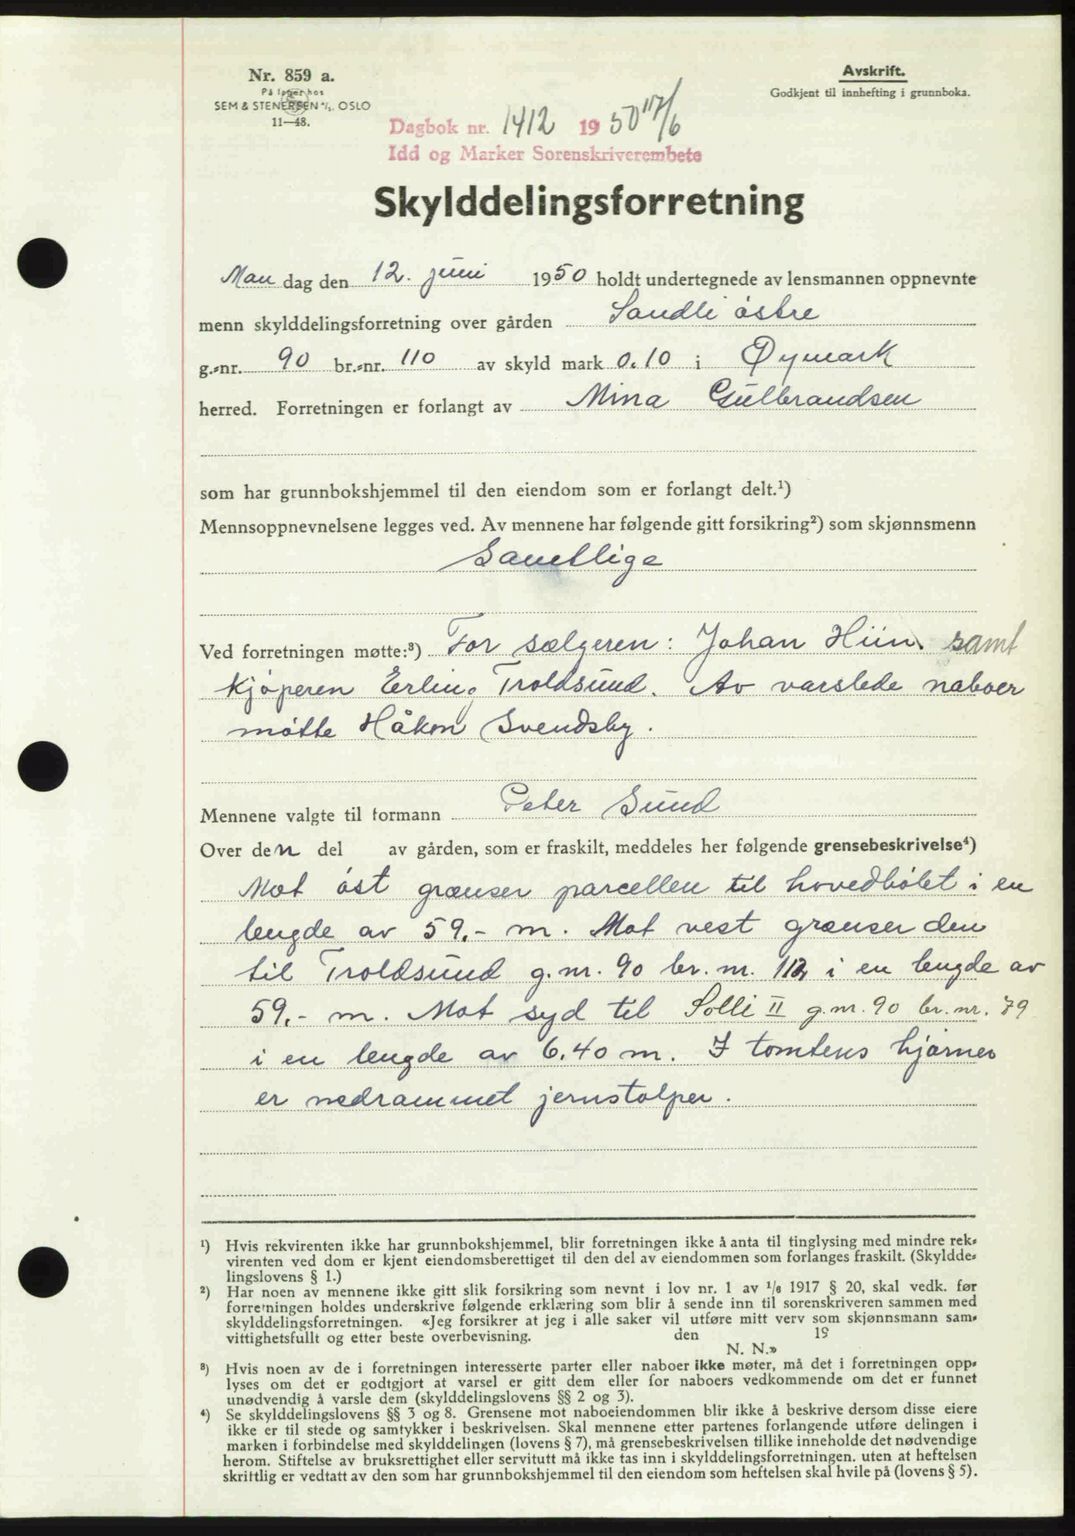 Nr. 859 a.
På lager hos
SEM & STENERSEN A/S, OSLO
11—48.
Avskrift.
Godkjent til innhefting i grunnboka.
Dagbok nr. 1412 1950 17/6
Idd og Marker Sorenskriverembete
Skylddelingsforretning
Mandag den 12. juni 1950 holdt undertegnede av lensmannen oppnevnte
menn skylddelingsforretning over gården Sandli östre
g.-nr. 90 br.-nr. 110 av skyld mark 0.10 i Øymark
herred. Forretningen er forlangt av Mina Gulbrandsen
som har grunnbokshjemmel til den eiendom som er forlangt delt.¹)
Mennsoppnevnelsene legges ved. Av mennene har følgende gitt forsikring²) som skjønnsmenn
Samtlige
Ved forretningen møtte:³) For sælgeren: Johan Hiin. samt
kjöperen Erling Troldsund. Av varslede naboer
mötte Håkon Svendsby.
Mennene valgte til formann Peter Sund
Over den del av gården, som er fraskilt, meddeles her følgende grensebeskrivelse⁴)
Mot öst grænser parcellen til hovedbölet i en
lengde av 59,- m. Mot vest grænser den
til Troldsund g.nr. 90 br.nr. 112, i en lengde av
59,- m. Mot syd til Solli II g.nr. 90 br.nr. 79
i en lengde av 6.40 m. I tomtens hjørner
er nedrammet jernstolper.
¹) Hvis rekvirenten ikke har grunnbokshjemmel, blir forretningen ikke å anta til tinglysing med mindre rek-
virenten ved dom er kjent eiendomsberettiget til den del av eiendommen som forlanges fraskilt. (Skyldde-
lingslovens § 1.)
²) Har noen av mennene ikke gitt slik forsikring som nevnt i lov nr. 1 av 1/6 1917 § 20, skal vedk. før
forretningen holdes underskrive følgende erklæring som blir å sende inn til sorenskriveren sammen med
skylddelingsforretningen. «Jeg forsikrer at jeg i alle saker vil utføre mitt verv som skjønnsmann sam-
vittighetsfullt og etter beste overbevisning. den 19
N. N.»
³) Hvis noen av de i forretningen interesserte parter eller naboer ikke møter, må det i forretningen opp-
lyses om det er godtgjort at varsel er gitt dem eller for naboers vedkommende om det er funnet
unødvendig å varsle dem (skylddelingslovens §§ 2 og 3).
⁴) Se skylddelingslovens §§ 3 og 8. Grensene mot naboeiendommen blir ikke å beskrive dersom disse eiere
ikke er til stede og samtykker i beskrivelsen. Skal mennene etter partenes forlangende utføre delingen i
marken i forbindelse med skylddelingen (lovens § 7), må grensebeskrivelsen tillike inneholde det nødvendige
herom. Stiftelse av bruksrettighet eller servitutt må ikke tas inn i skylddelingsforretningen. uten at heftelsen
skriftlig er vedtatt av den som har grunnbokshjemmel til den eiendom som heftelsen skal hvile på (lovens § 5).